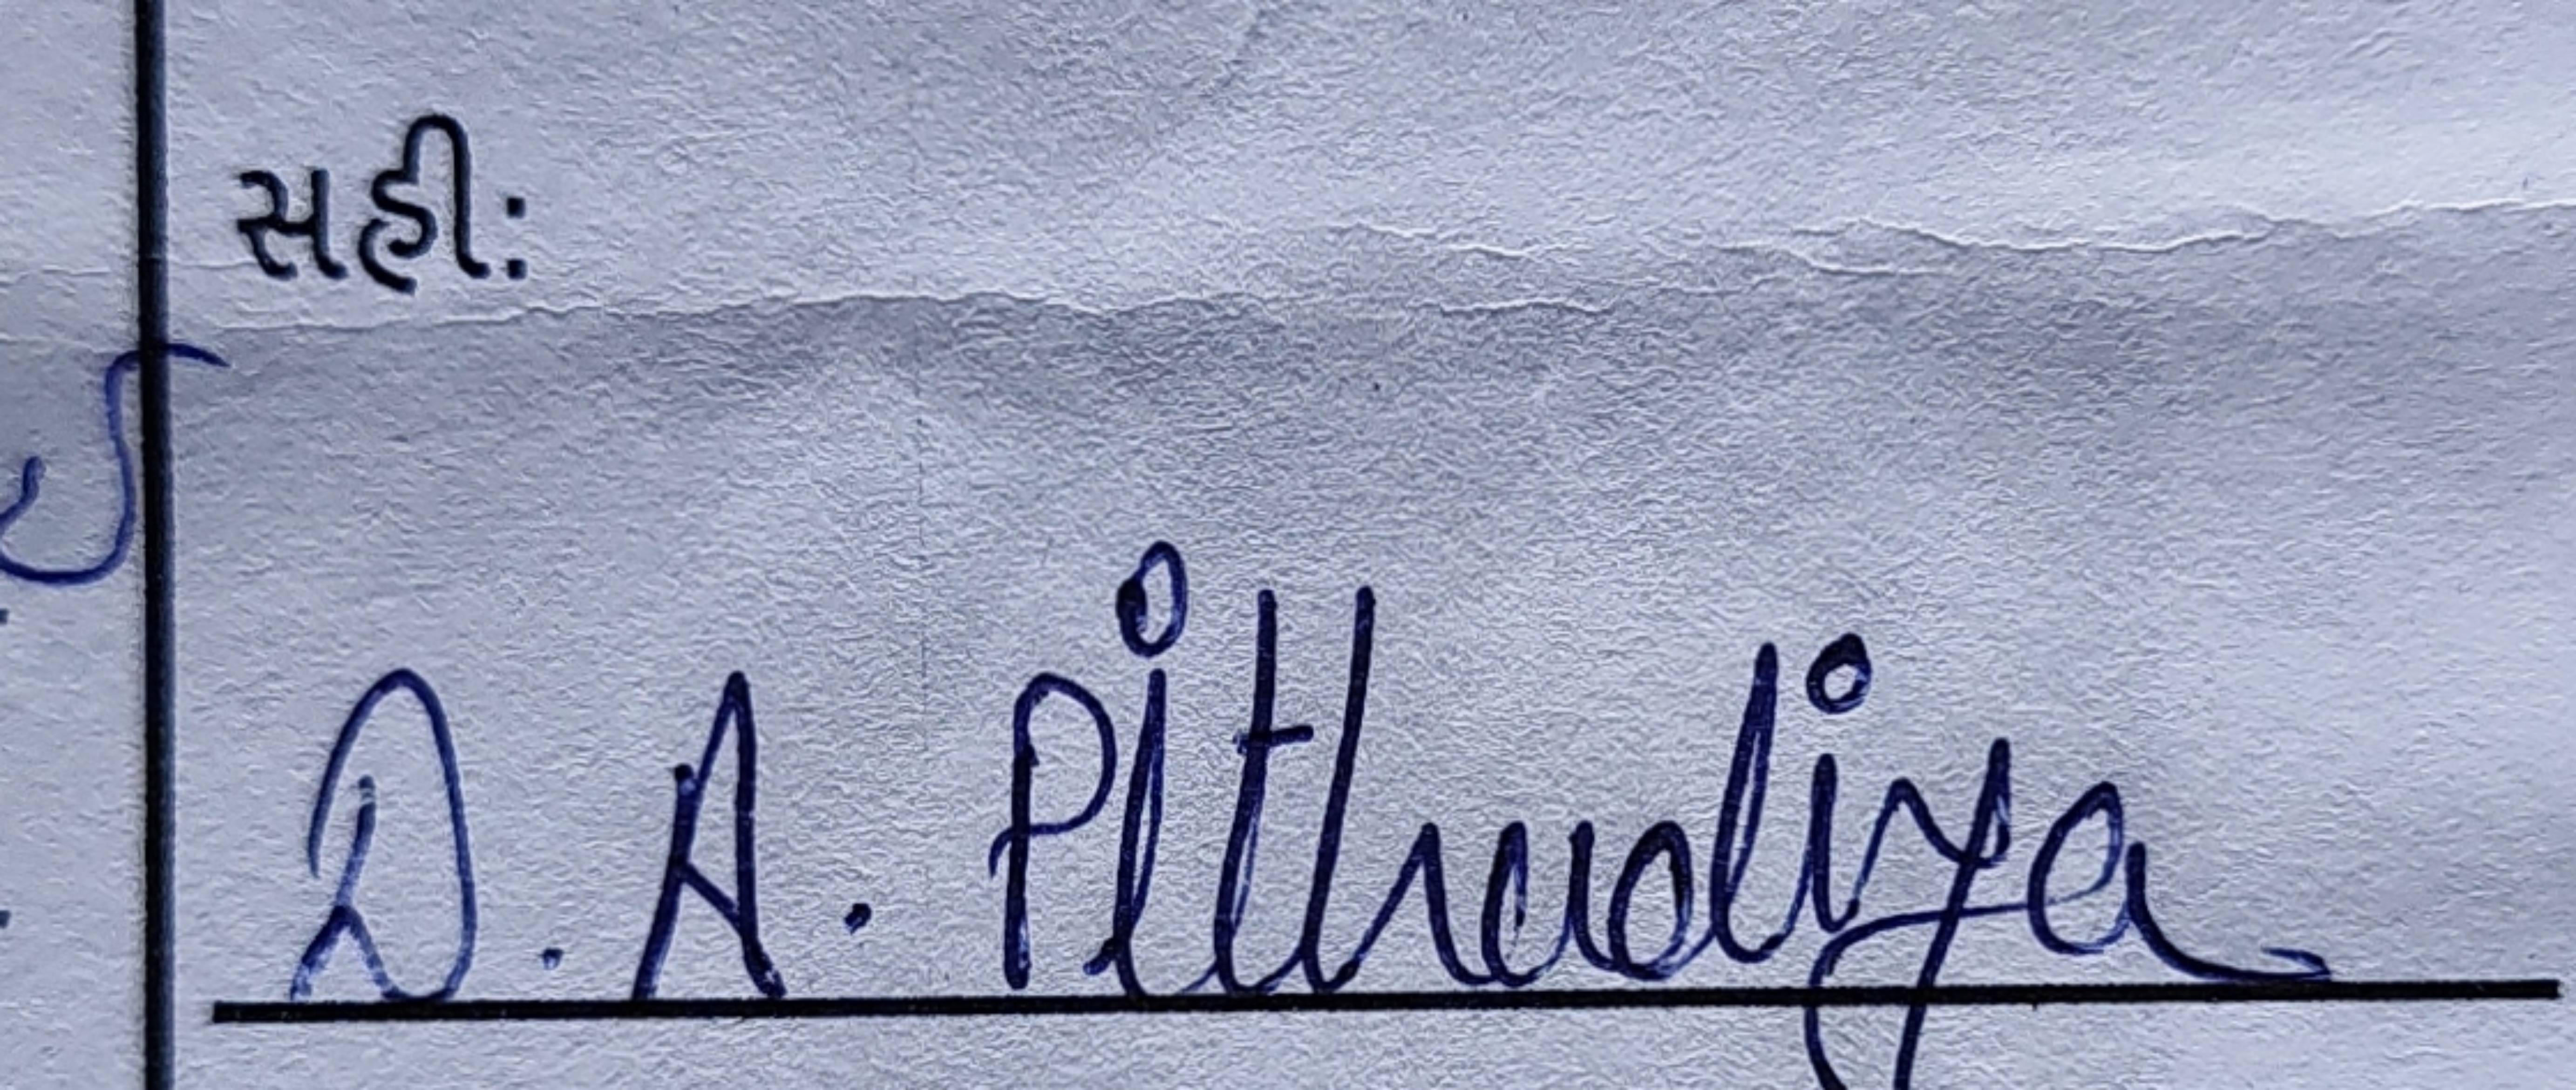 સહી:
D. A. Pithadiya